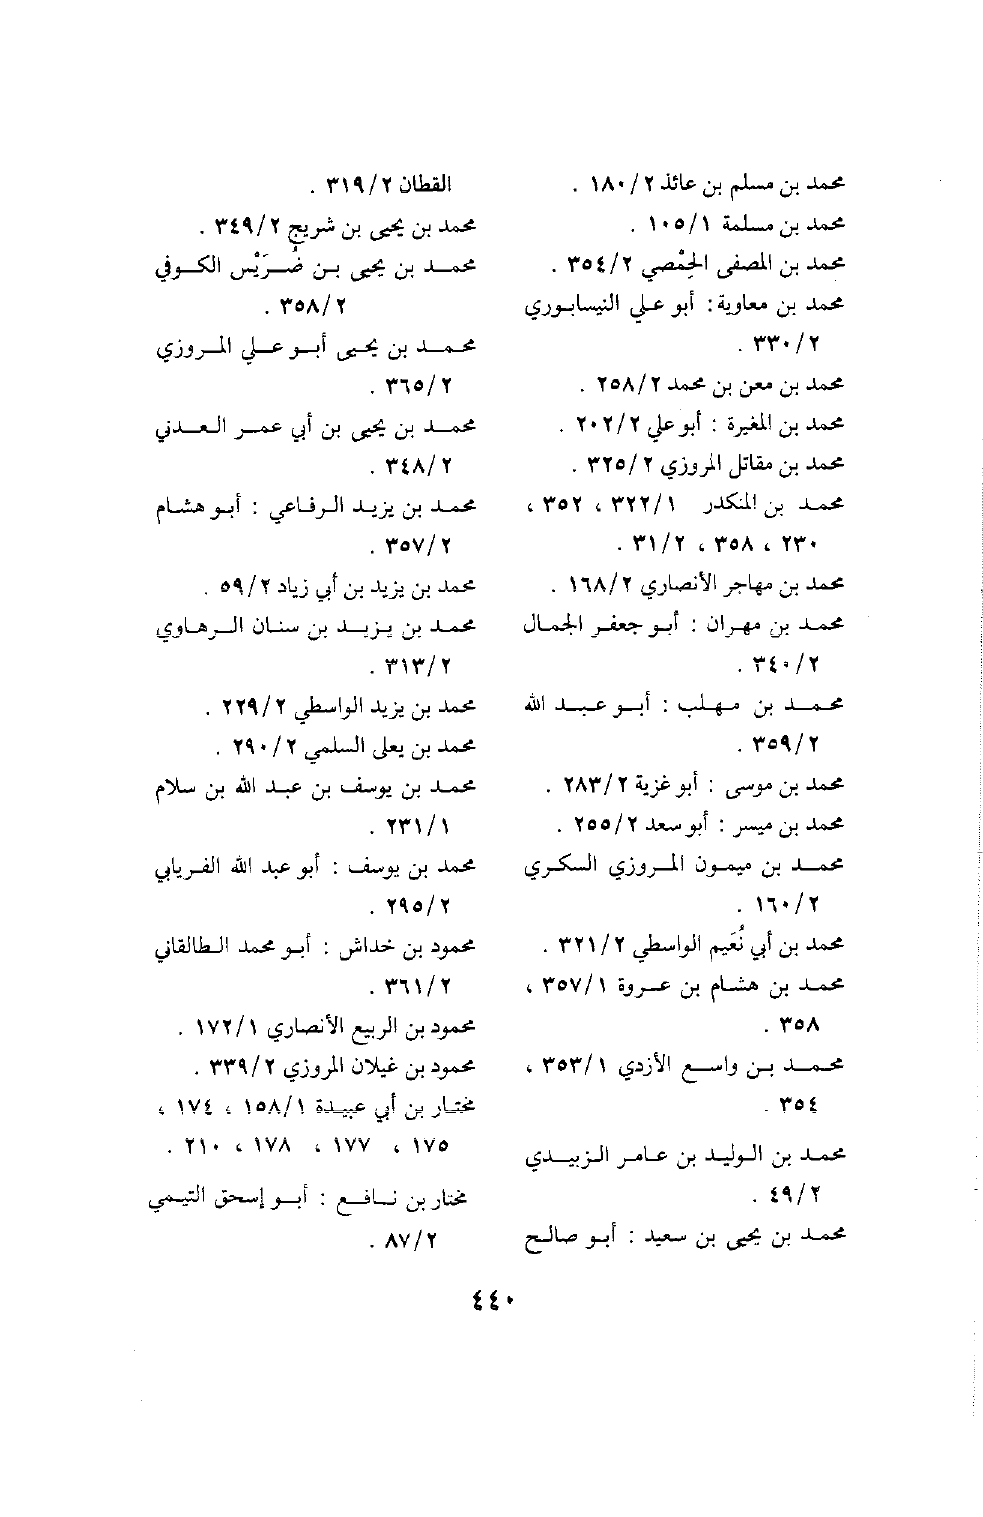 محمد بن مسلم بن عائذ ٢/ ١٨٠ .
محمد بن مسلمة ١/ ١٠٥ .
محمد بن المصفى الحِمْصي ٢/ ٣٥٤ .
محمد بن معاوية : أبو علي النيسابوري
٢/ ٣٣٠ .
محمد بن معن بن محمد ٢/ ٢٥٨ .
محمد بن المغيرة : أبو علي ٢/ ٢٠٢ .
محمد بن مقاتل المروزي ٢/ ٣٢٥ .
محمد بن المنكدر ١/ ٣٢٢ ، ٣٥٢ ،
٢٣٠ ، ٣٥٨ ، ٢/ ٣١ .
محمد بن مهاجر الأنصاري ٢/ ١٦٨ .
محمد بن مهران : أبو جعفر الجمال
٢/ ٣٤٠ .
محمد بن مهلب : أبو عبد الله
٢/ ٣٥٩ .
محمد بن موسى : أبو غزية ٢/ ٢٨٣ .
محمد بن ميسر : أبو سعد ٢/ ٢٥٥ .
محمد بن ميمون المروزي السكري
٢/ ١٦٠ .
محمد بن أبي نُعَيم الواسطي ٢/ ٣٢١ .
محمد بن هشام بن عروة ١/ ٣٥٧ ،
٣٥٨ .
محمد بن واسع الأزدي ١/ ٣٥٣ ،
٣٥٤ .
محمد بن الوليد بن عامر الزبيدي
٢/ ٤٩ .
محمد بن يحيى بن سعيد : أبو صالح
القطان ٢/ ٣١٩ .
محمد بن يحيى بن شريح ٢/ ٣٤٩ .
محمد بن يحيى بن ضُرَيْس الكوفي
٢/ ٣٥٨ .
محمد بن يحيى أبو علي المروزي
٢/ ٣٦٥ .
محمد بن يحيى بن أبي عمر العدني
٢/ ٣٤٨ .
محمد بن يزيد الرفاعي : أبو هشام
٢/ ٣٥٧ .
محمد بن يزيد بن أبي زياد ٢/ ٥٩ .
محمد بن يزيد بن سنان الرهاوي
٢/ ٣١٣ .
محمد بن يزيد الواسطي ٢/ ٢٢٩ .
محمد بن يعلى السلمي ٢/ ٢٩٠ .
محمد بن يوسف بن عبد الله بن سلام
١/ ٢٣١ .
محمد بن يوسف : أبو عبد الله الفريابي
٢/ ٢٩٥ .
محمود بن خداش : أبو محمد الطالقاني
٢/ ٣٦١ .
محمود بن الربيع الأنصاري ١/ ١٧٢ .
محمود بن غيلان المروزي ٢/ ٣٣٩ .
مختار بن أبي عبيدة ١/ ١٥٨ ، ١٧٤ ،
١٧٥ ، ١٧٧ ، ١٧٨ ، ٢١٠ .
مختار بن نافع : أبو إسحق التيمي
٢/ ٨٧ .
٤٤٠